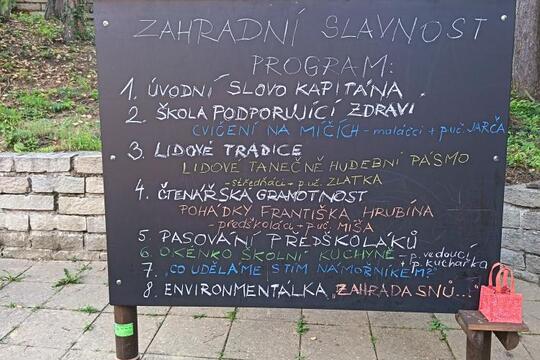 ZAHRADNÍ SLAVNOST
PROGRAM:
1. ÚVODNÍ SLOVO KAPITÁNA
2. ŠKOLA PODPORUJÍCÍ ZDRAVÍ
CVIČENÍ NA MÍČÍCH - maláčci + p.uč. JARČA
3. LIDOVÉ TRADICE
LIDOVÉ TANEČNĚ HUDEBNÍ PÁSMO
- středňáci - p.uč. ZLATKA
4. ČTENÁŘSKÁ GRAMOTNOST
POHÁDKY FRANTIŠKA HRUBÍNA
- předškoláci - p.uč. MIŠA
5. PASOVÁNÍ PŘEDŠKOLÁKŮ
6. OKÉNKO ŠKOLNÍ KUCHYNĚ - p. vedoucí + p. kuchařka
7. „CO UDĚLÁME S TÍM NÁMOŘNÍKEM?"
8. ENVIRONMENTÁLKA „ZAHRADA SNŮ..."